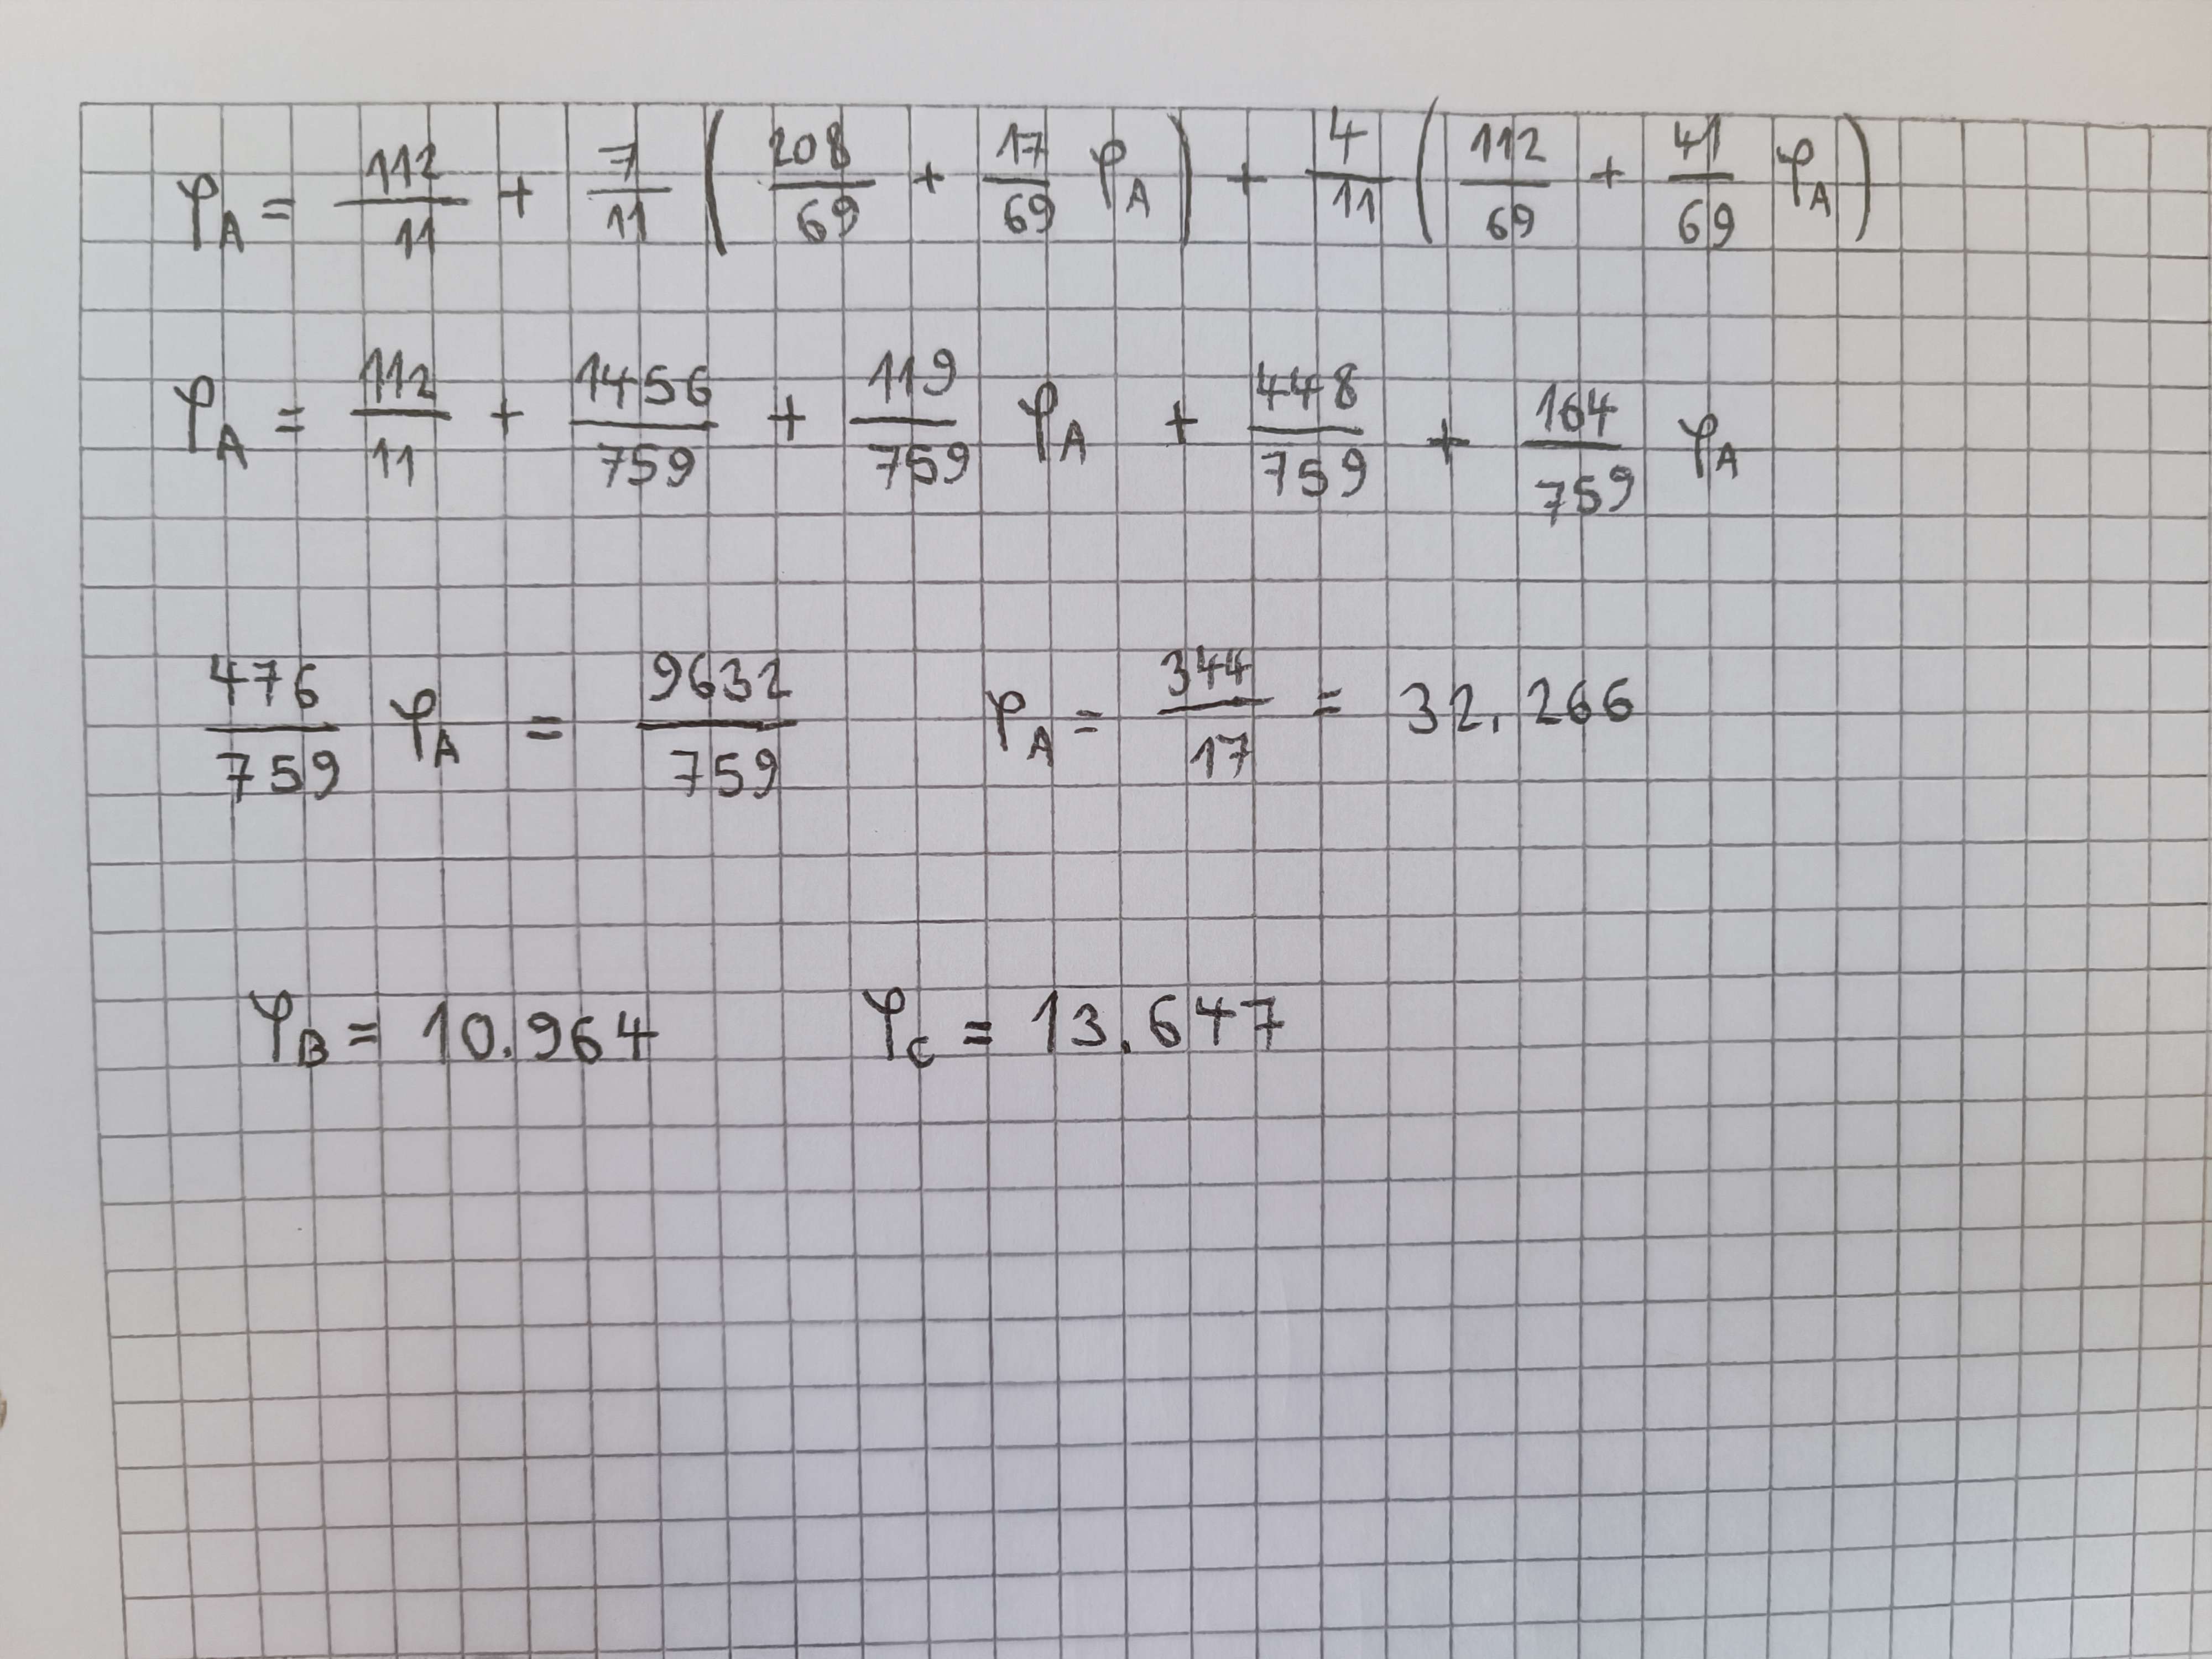 φ_A = 112/11 + 7/11 ( 208/69 + 17/69 φ_A ) + 4/11 ( 112/69 + 41/69 φ_A )
φ_A = 112/11 + 1456/759 + 119/759 φ_A + 448/759 + 164/759 φ_A
476/759 φ_A = 9632/759 φ_A = 344/17 = 32.266
φ_B = 10.964 φ_C = 13.647